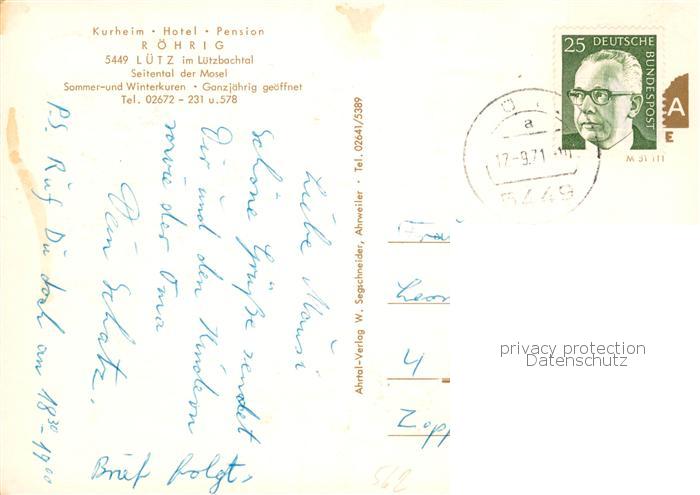 Kurheim · Hotel · Pension
RÖHRIG
5449 LÜTZ im Lützbachtal
Seitental der Mosel
Sommer-und Winterkuren · Ganzjährig geöffnet
Tel. 02672 – 231 u. 578
25 DEUTSCHE
BUNDESPOST
A
E
a
17-9.71
5449
Liebe Mausi
Schöne Grüße sendet
Dir und den Kindern
sowie der Oma
Dein Schatz.
Brief folgt.
P.S. Ruf Du doch an 18³⁰-19⁰⁰
Ahrtal-Verlag W. Segschneider, Ahrweiler · Tel. 02641/5389
4
Zopp
562
privacy protection
Datenschutz